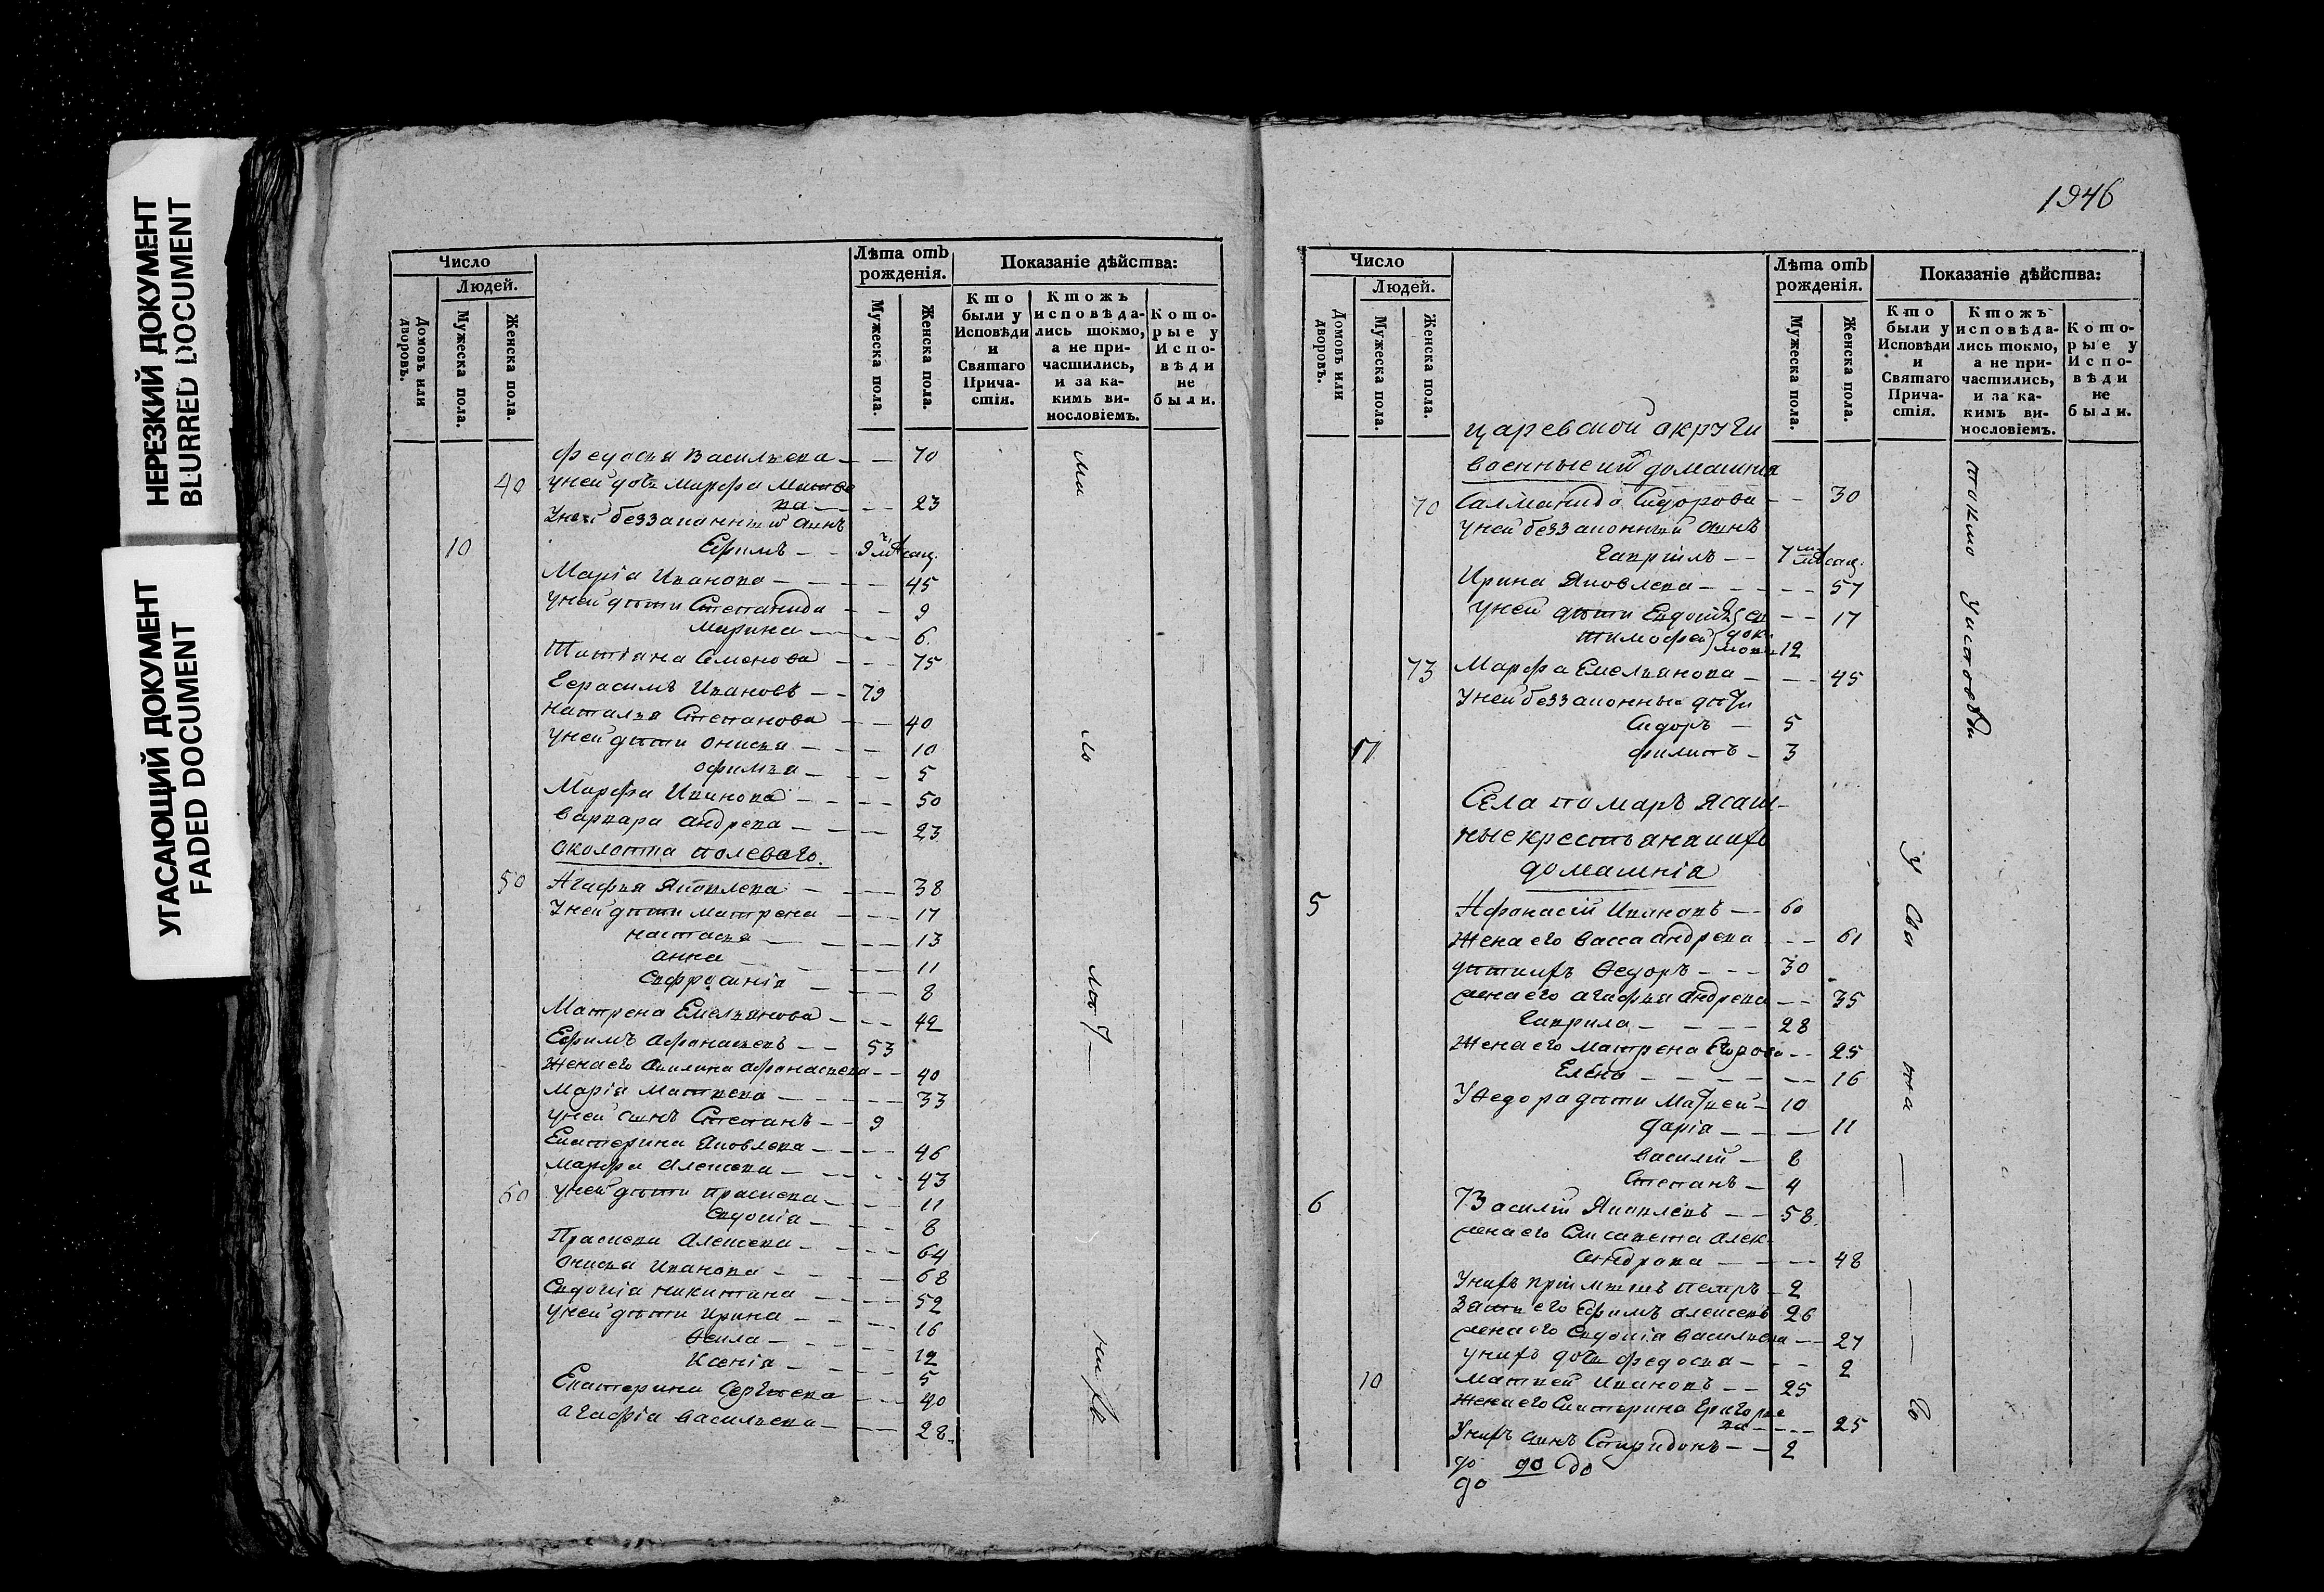 НЕРЕЗКИЙ ДОКУМЕНТ
BLURRED DOCUMENT
УГАСАЮЩИЙ ДОКУМЕНТ
FADED DOCUMENT
Число
Людей.
Домовъ или дворовъ.
Мужеска пола.
Женска пола.
Лѣта отъ рожденія.
Мужеска пола.
Женска пола.
Показаніе дѣйства:
Кто были у Исповѣди и Святаго Прича-стія.
Ктожъ исповѣда-лись токмо, а не при-частились, и за ка-кимъ ви-нословіемъ.
Кото-рые у Испо-вѣди не были.
Федосья Васильева — — 70
40 у ней дочь Марфа Матве
ва — — — 23
У ней беззаконный сынъ
10 Ефимъ — — 9 мѣсяц.
Марія Иванова — — — — 45
у ней дѣти Степанида — — 9
Марина — — — 6
Татіана Семенова — — — 75
Герасимъ Ивановъ — — 79
Наталья Степанова — — 40
у ней дѣти Онисья — — — 10
Офимья — — — 5
Марфа Иванова — — — — 50
Варвара Андрева — — — 23
околотка полеваго.
50 Агафья Яковлева — — — 38
У ней дѣти Матрена — — — 17
Настасья — — — — 13
Анна — — — — 11
Евфросинія — — — 8
Матрена Емельянова — — — 42
Ефимъ Афонасьевъ — — 53
Жена его Акилина Афонасьева — — 40
Марія Матвева — — — — 33
у ней сынъ Степанъ — — 9
Екатерина Яковлева — — — 46
Марфа Алексева — — — — 43
60 у ней дѣти Прасковья — — — 11
Евдокія — — — 8
Прасковья Алексева — — — 64
Онисья Иванова — — — — 68
Евдокія Никитина — — — 52
у ней дѣти Ирина — — — — 16
Ѳекла — — — — 12
Ксенія — — — — 5
Екатерина Сергѣева — — 40
Агафія Васильева — — — 28
1946
Число
Людей.
Домовъ или дворовъ.
Мужеска пола.
Женска пола.
Лѣта отъ рожденія.
Мужеска пола.
Женска пола.
Показаніе дѣйства:
Кто были у Исповѣди и Святаго Прича-стія.
Ктожъ исповѣда-лись токмо, а не при-частились, и за ка-кимъ ви-нословіемъ.
Кото-рые у Испо-вѣди не были.
царевской округи
военные и домашнія
70 Саламанида Сидорова — — 30
У ней беззаконный сынъ
Гавріилъ — — 7 мѣсяц.
Ирина Яковлева — — — — — 57
у ней дѣти Евдокія — — 17
Тимофей 12
73 Марфа Емельянова — — — 45
У ней беззаконные дѣти
Сидоръ — 5
17 Филипъ — 3
токмо у исповѣди
Села помаръ ясаш-
ные крестьяна и ихъ
домашнія
5 Афонасій Ивановъ — — 60
Жена его Васса Андрева — — 61
дѣти ихъ Ѳедоръ — — — 30
жена его Агафья Андрева — — 35
Гаврила — — — — 28
Жена его Матрена Егорова — — 25
Елена — — — — — — 16
У Ѳедора дѣти Матвей — 10
Дарія — — — 11
Василій — 8
Степанъ — 4
6 Василій Яковлевъ — — 58
жена его Елисавета Алек-
сандрова — — — — 48
У нихъ пріимышъ Петръ — 2
Зять его Ефимъ Алексевъ 26
жена его Евдокія Васильева — — 27
у нихъ дочь Федосья — — — 2
10 Матвей Ивановъ — — 25
Жена его Екатерина Григорье
ва — — — 25
У нихъ сынъ Спиридонъ — — 2
до до до
до